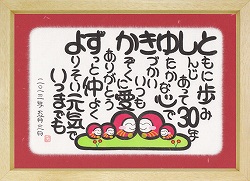 ともに歩み
しんじあって30年
ゆたかな心で
きづかいいつも
かぞくに愛
ありがとう
ずっと仲よく
よりそい元気で
いつまでも
二〇一三年